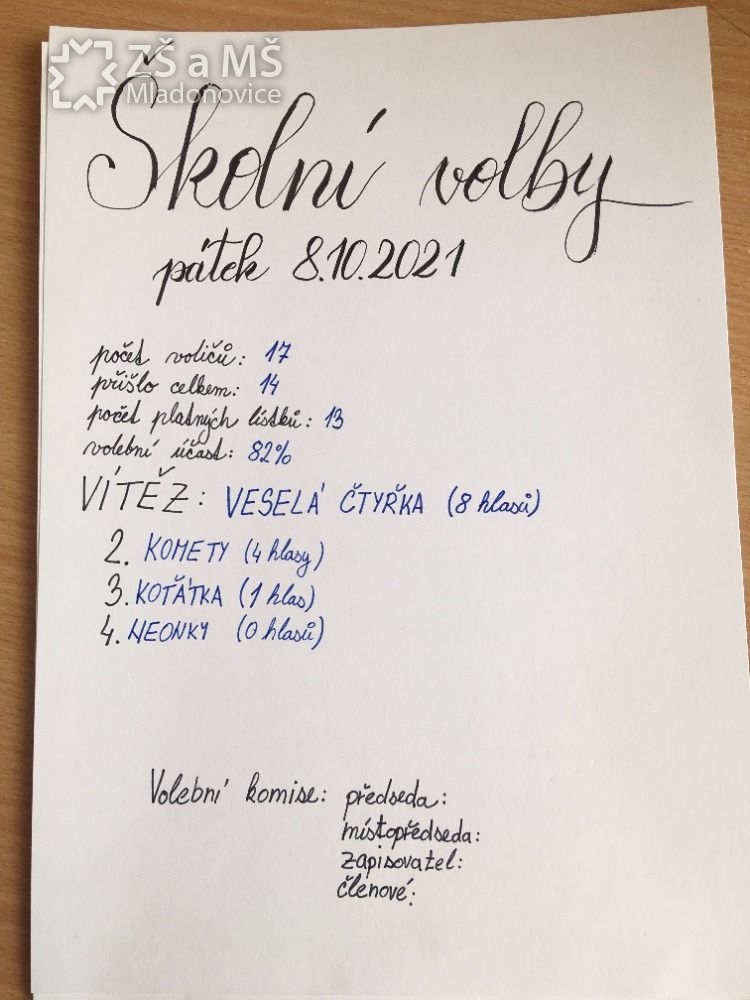 ZŠ a MŠ
Mladoňovice
Školní volby
pátek 8.10.2021
počet voličů: 17
přišlo celkem: 14
počet platných lístků: 13
volební účast: 82%
VÍTĚZ: VESELÁ ČTYŘKA (8 hlasů)
2. KOMETY (4 hlasy)
3. KOŤÁTKA (1 hlas)
4. NEONKY (0 hlasů)
Volební komise: předseda:
místopředseda:
zapisovatel:
členové: